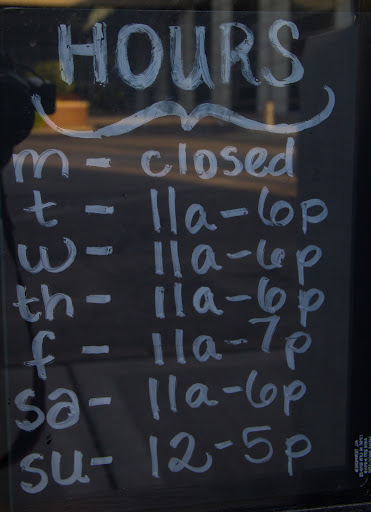 HOURS
m - closed
t - 11a-6p
w - 11a-6p
th - 11a-6p
f - 11a-7p
sa - 11a-6p
su - 12-5p